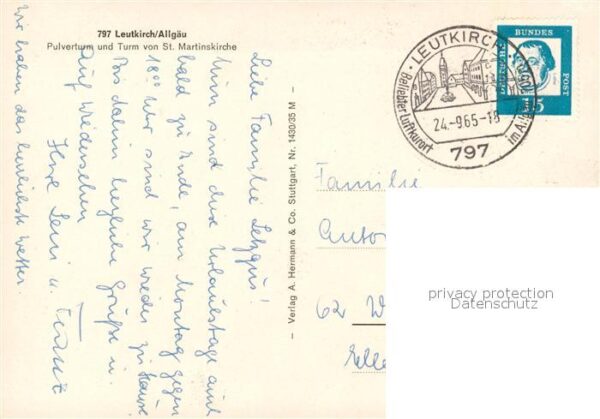 797 Leutkirch/Allgäu
Pulverturm und Turm von St. Martinskirche
Liebe Familie
Nun sind diese Urlaubstage auch
bald zu Ende, am Montag gegen
18°° Uhr sind wir wieder zu Hause.
Bis dahin herzliche Grüße u.
Auf Wiedersehen
Ihre u.
Wir haben das herrlichste Wetter.
– Verlag A. Hermann & Co. Stuttgart, Nr. 1430/35 M –
LEUTKIRCH
24.-9.65-18
Beliebter Luftkurort
im Allgäu
797
DEUTSCHE
BUNDES
POST
15
Familie
Anto
62 W
Elle
privacy protection
Datenschutz